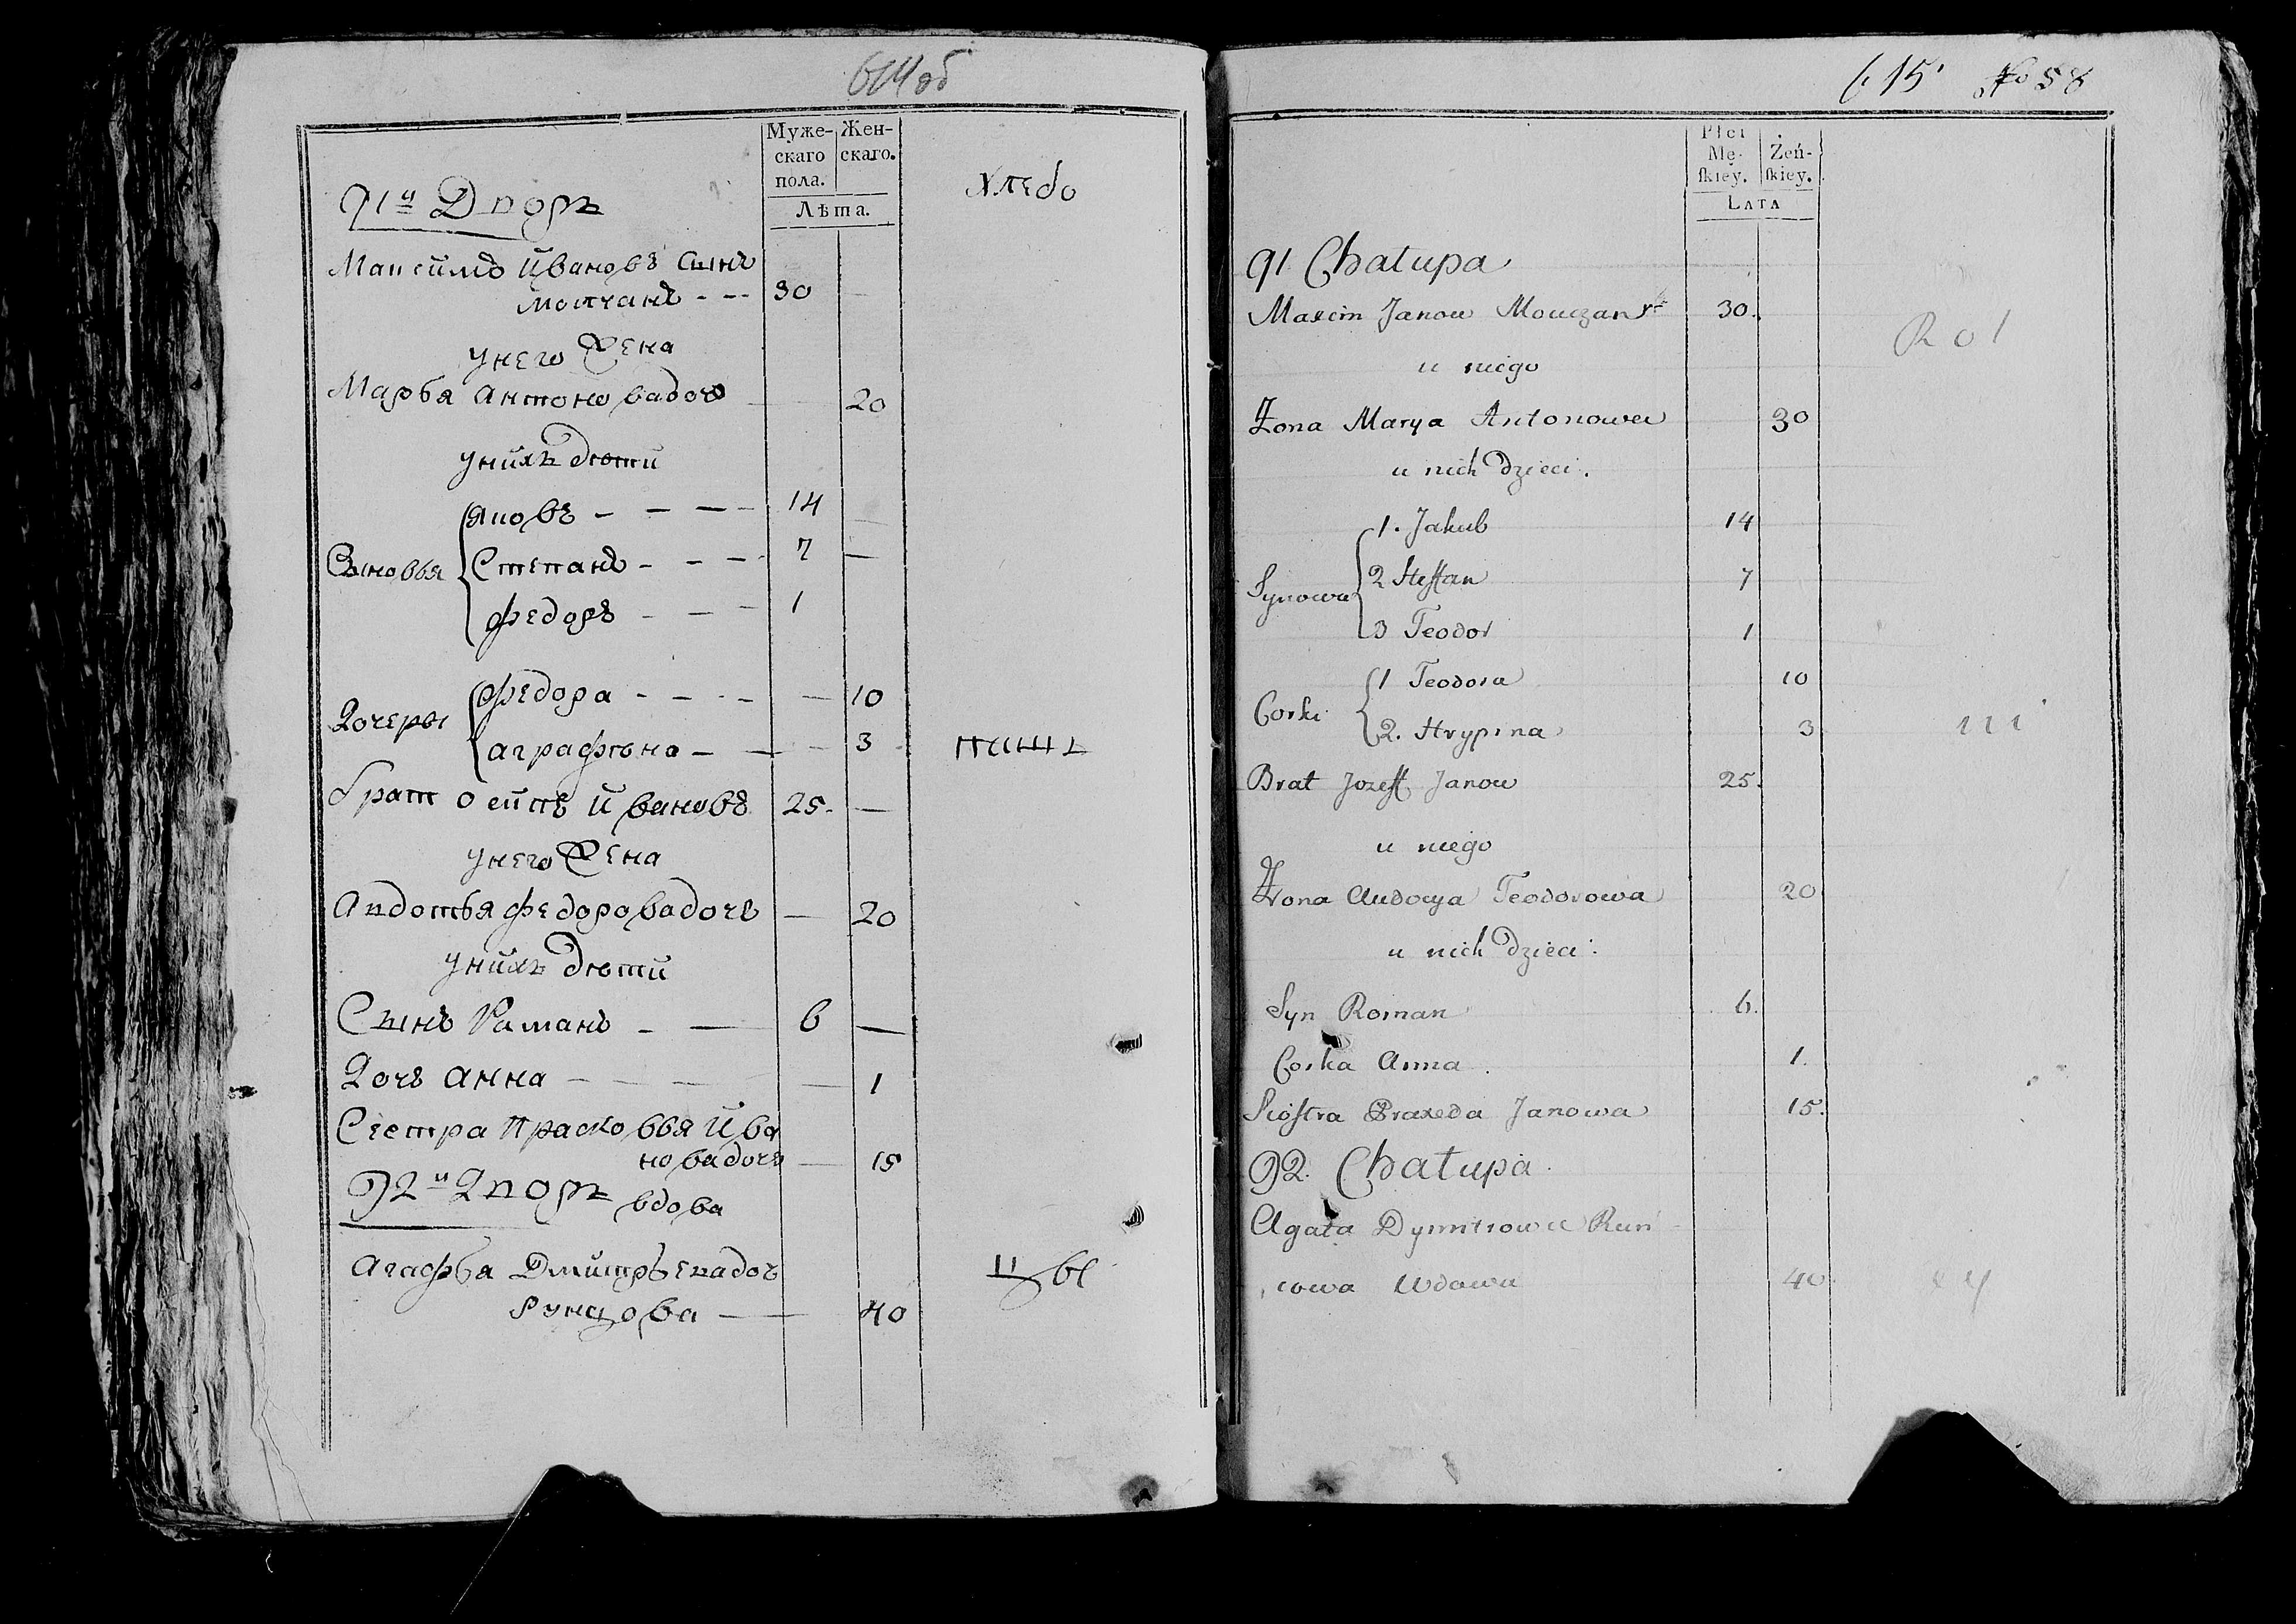 614 об
Муже- Жен-
скаго скаго.
пола.
Лѣта.
91й Дворъ
Хлебо
Максимъ Ивановъ Сынъ
Молчанъ - -- 30 —
унего Жена
Марья Антоновадочь 20
унихъ дѣти
Сыновья
Яковъ - - - - 14 —
Степанъ - - - 7 —
Федоръ - - - 1
Дочеры
Федора - - - - — 10
Аграфѣна - — — 3
пашь
брат Осипъ Ивановъ 25. —
унего Жена
Авдотья Федоровадочь — 20
унихъ дѣти
Сынъ Раманъ - — 6 —
Дочь Анна - - - — 1
Сестра Прасковья Ива
новадочь — 15
92й Дворъ вдова
Агафья Дмитрьевадоч
цы
Рунцова — — 40
615 No 58
Płci
Mę- Żeń-
ſkiey. ſkiey.
LATA
91 Chałupa
Maxim Janow Mouczan 30.
Rol
u niego
Żona Marya Antonowa 30
u nich Dzieci.
Synowie
1. Jakub 14
2 Steffan 7
3 Teodor 1
Corki
1 Teodora 10
2. Hrypina 3
ni
Brat Jozeff Janow 25.
u niego
Żona Audocya Teodorowa 20
u nich Dzieci:
Syn Roman 6.
Corka Anna. 1.
Siostra Praxeda Janowa 15.
92. Chałupa.
Agata Dymitrowa Run
cowa Wdowa 40.